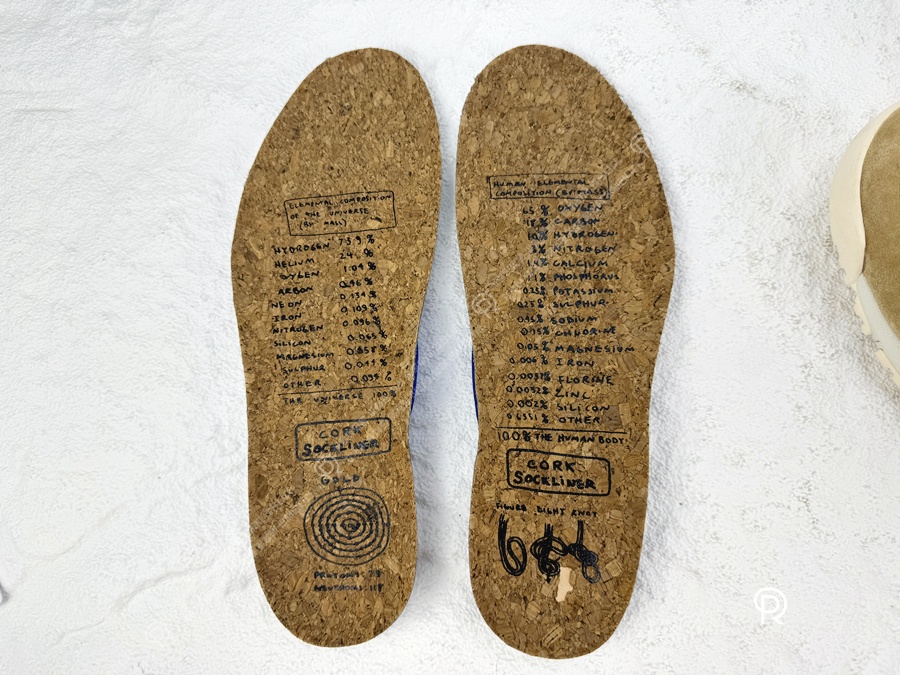 ELEMENTAL COMPOSITION
OF THE UNIVERSE
(BY MALL)
HYDROGEN 73.9 %
HELIUM 24. %
OXYGEN 1.04 %
ARBON 0.46 %
NEON 0.134 %
IRON 0.109 %
NITROGEN 0.096 %
SILICON 0.065 %
MAGNESIUM 0.058 %
SULPHUR 0.044 %
OTHER 0.094 %
THE UNIVERSE 100%
CORK
SOCKLINER
GOLD
PROTONS:
NEUTRONS: 118
HUMAN ELEMENTAL
COMPOSITION (BY MASS)
65 % OXYGEN
18 % CARBON
10 % HYDROGEN
3 % NITROGEN
1.4 % CALCIUM
1.1 % PHOSPHORUS
0.25 % POTASSIUM
0.25 % SULPHUR
0.15 % SODIUM
0.15 % CHLORINE
0.05 % MAGNESIUM
0.006 % IRON
0.0037% FLORINE
0.0032% ZINC
0.002% SILICON
0.6351 % OTHER
100% THE HUMAN BODY
CORK
SOCKLINER
FIGURE EIGHT KNOT